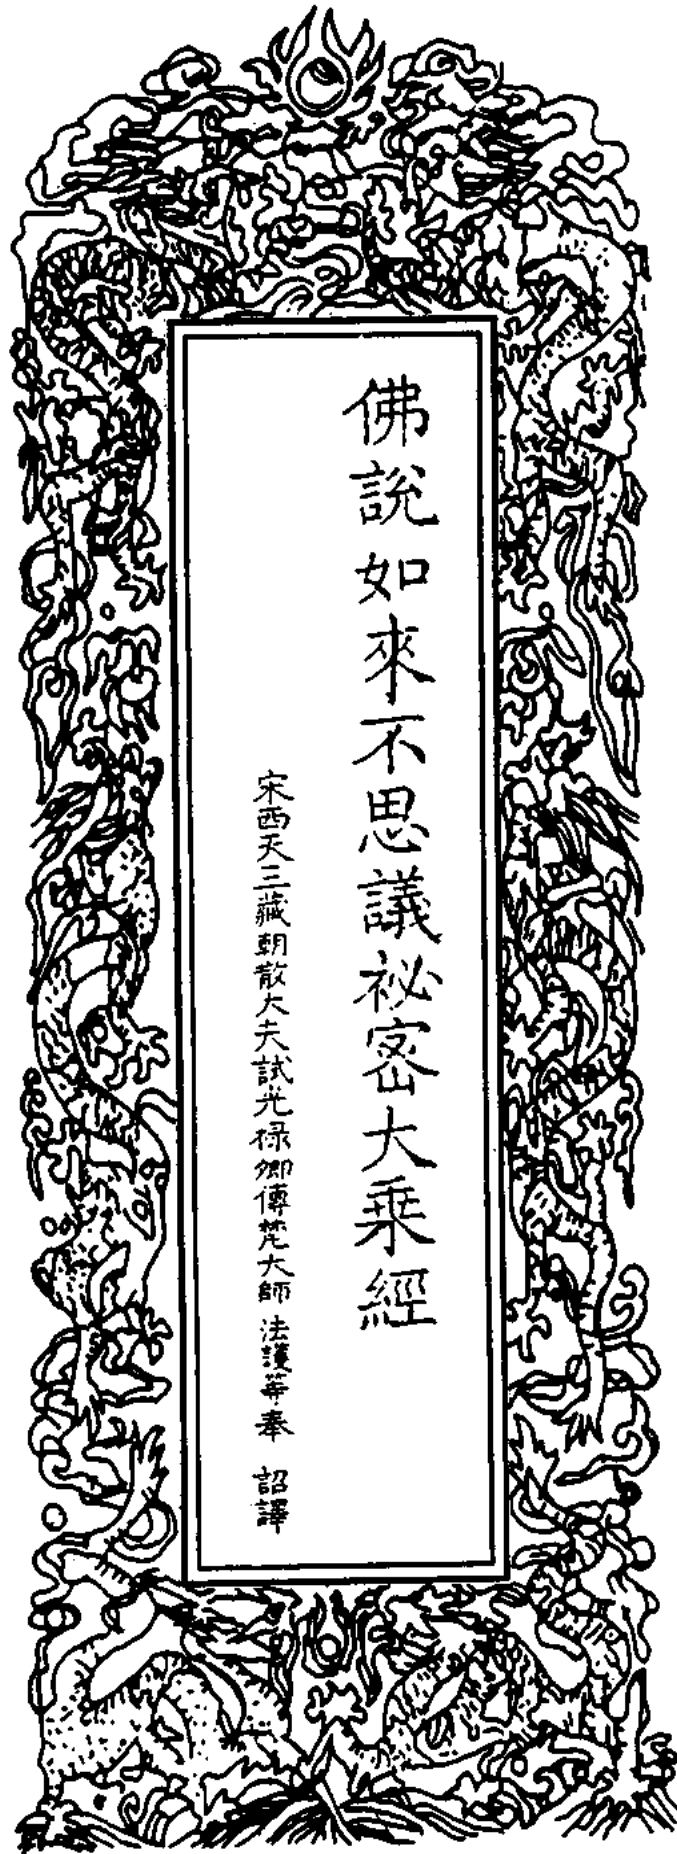 佛說如來不思議祕密大乘經
宋西天三藏朝散大夫試光祿卿傳梵大師 法護等奉 詔譯